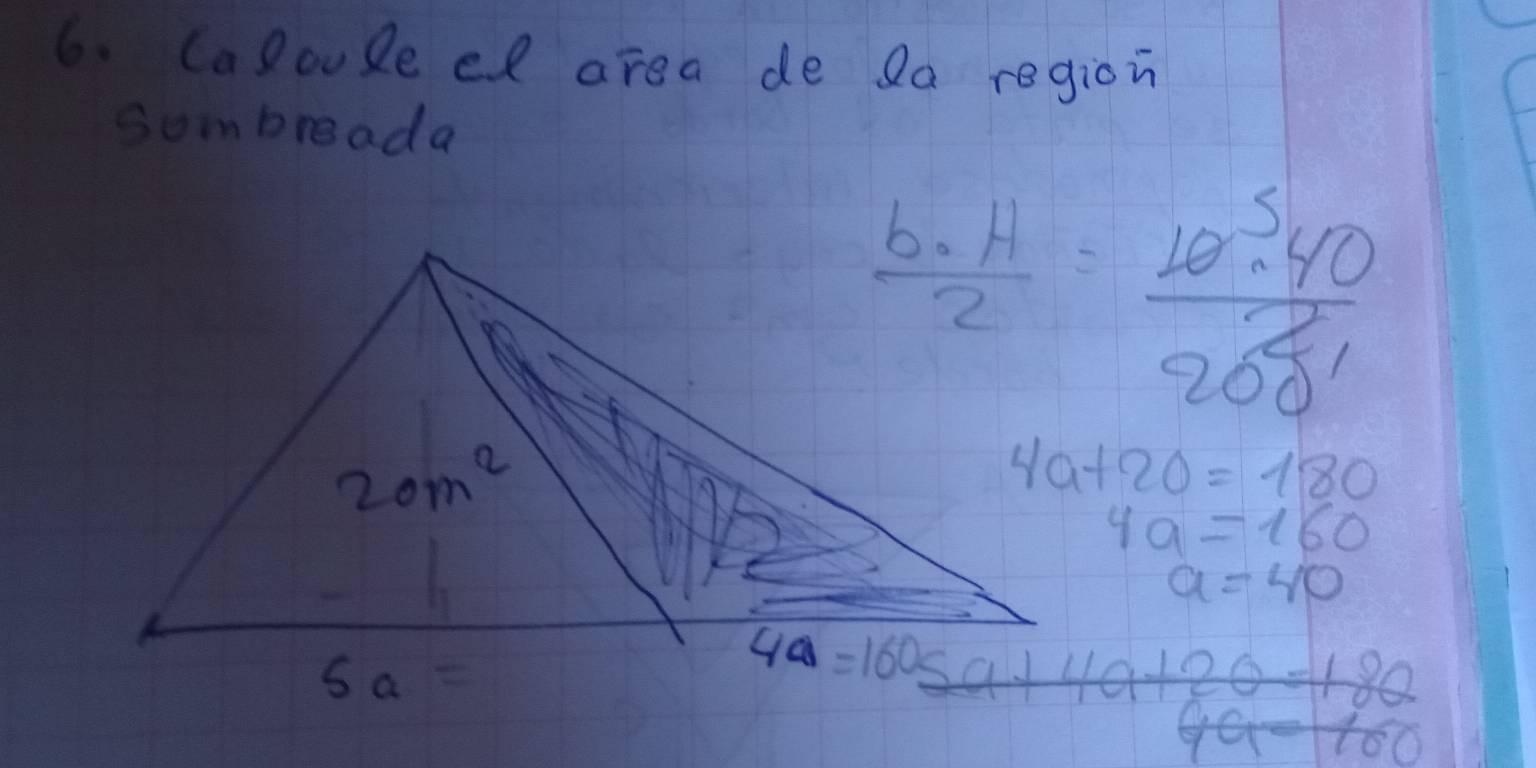 6. Calcule el area de la región
sombreada
b.H/2 = 10 5.40/2
200
20m²
4a+20=180
4a=160
a=40
5a =
4a =160
5a+4a+20=180
9a=160